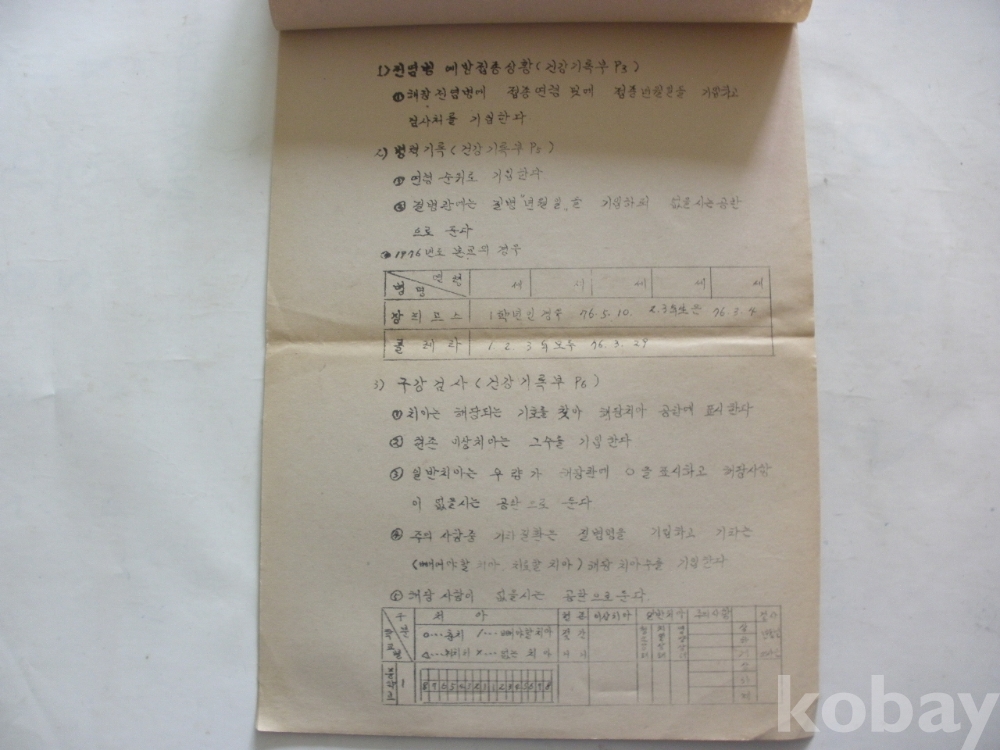 1) 전염병 예방접종상황 (건강기록부 P3)
① 해당 전염병에 접종연령 및에 접종년월일을 기입하고
검사처를 기입한다
2) 병력기록 (건강기록부 P5)
① 연령 순위로 기입한다
② 질병란에는 질병 "년월일"을 기입하되 없을시는 공란
으로 둔다
③ 1976년도 본교의 경우
병명 연령 세 세 세 세 세
장티프스 1학년인 경우 76.5.10. 2.3학년은 76.3.
콜레라 1 2 3 학모두 76.3.29
3) 구강검사 (건강기록부 P6)
① 치아는 해당되는 기호를 찾아 해당치아 공란에 표시한다
② 현존 이상치아는 그수를 기입한다
③ 일반치아는 우 량 가 해당란에 ○를 표시하고 해당사항
이 없을시는 공란으로 둔다
④ 주의사항을 기타질환은 질병명을 기입하고 기타는
(빼야할 치아, 치료할 치아) 해당 치아수를 기입한다
⑤ 해당 사항이 없을시는 공란으로 둔다.
구분 치아 현존 이상치아 일반치아 주의사항 검사
○…충치 /…빼야할치아
△…처치치 ×…없는 치아
1
8 7 6 5 4 3 2 1 1 2 3 4 5 6 7 8
kobay